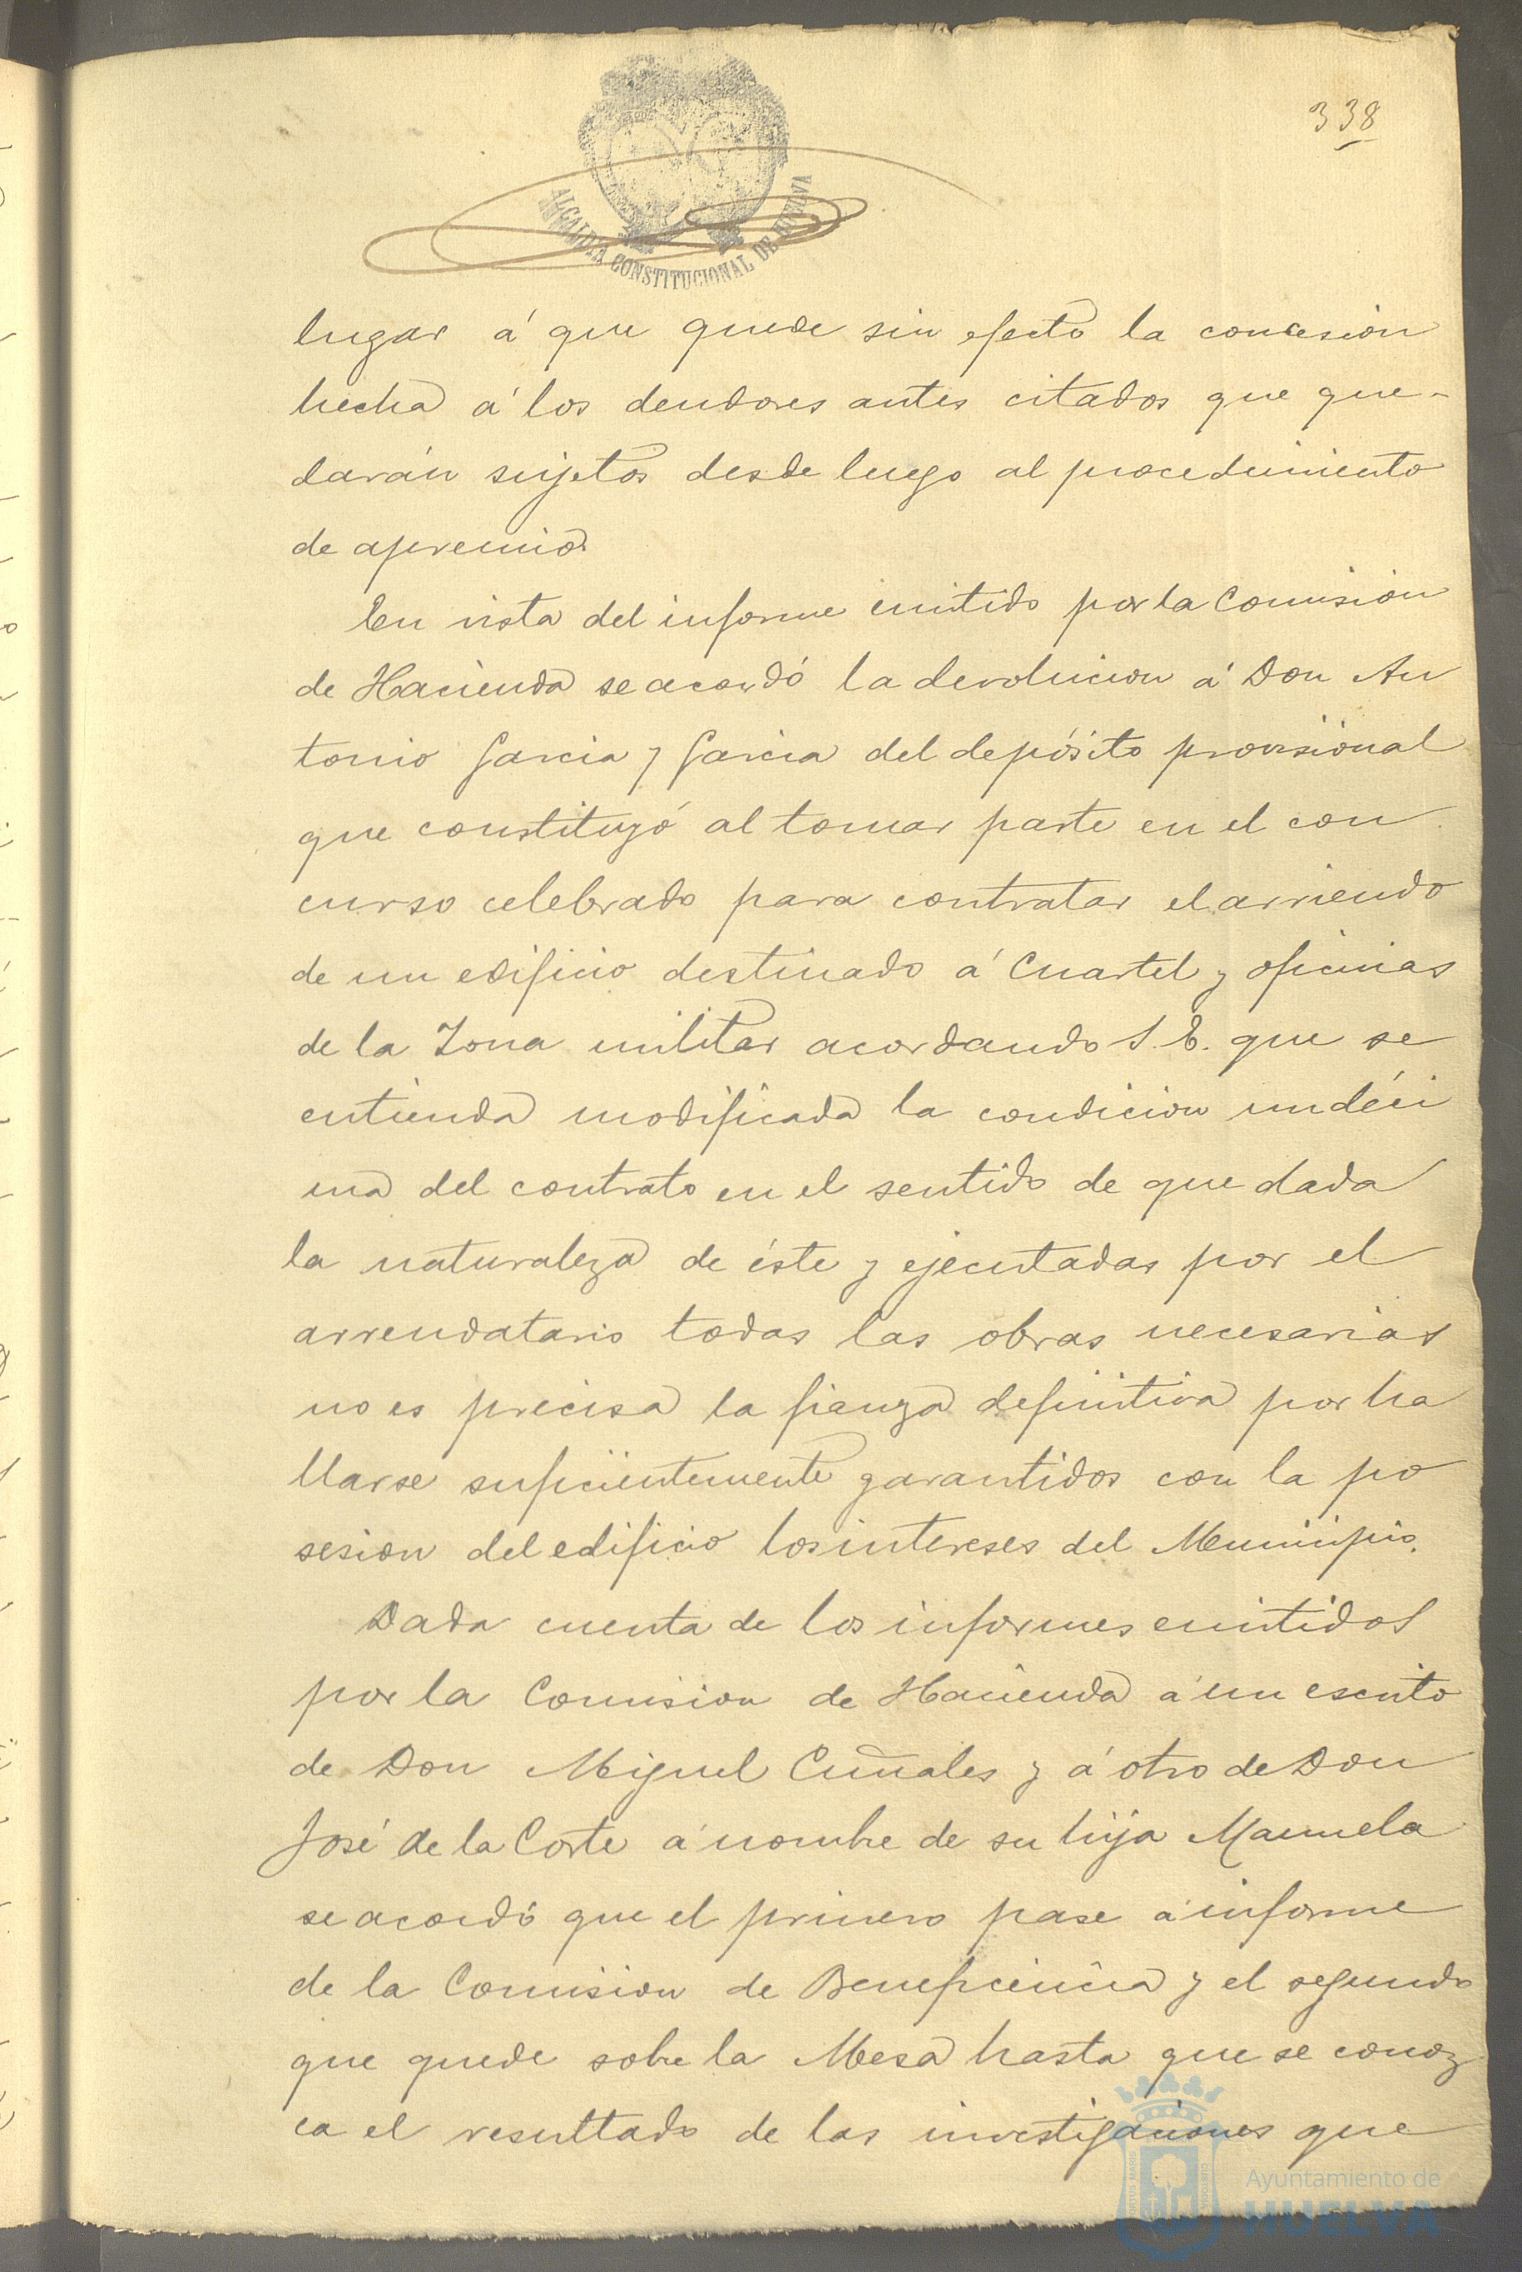 338
ALCALDIA CONSTITUCIONAL DE HUELVA
lugar á que quede sin efecto la concesion
hecha á los deudores antes citados que que-
darán sujetos desde luego al procedimiento
de apremio.
En vista del informe emitido por la Comision
de Hacienda se acordó la devolucion á Don An
tonio Garcia y Garcia del depósito provisional
que constituyó al tomar parte en el con
curso celebrado para contratar el arriendo
de un edificio destinado á Cuartel y oficinas
de la Zona militar acordando S. E. que se
entienda modificada la condicion undéci
ma del contrato en el sentido de que dada
la naturaleza de éste y ejecutadas por el
arrendatario todas las obras necesarias
no es precisa la fianza definitiva por ha
llarse suficientemente garantidos con la po
sesion del edificio los intereses del Municipio.
Dada cuenta de los informes emitidos
por la Comision de Hacienda á un escrito
de Don Miguel Cuñales y á otro de Don
José de la Corte á nombre de su hija Manuela
se acordó que el primero pase á informe
de la Comision de Beneficencia y el segundo
que quede sobre la Mesa hasta que se conoz
ca el resultado de las investigaciones que
Ayuntamiento de
HUELVA